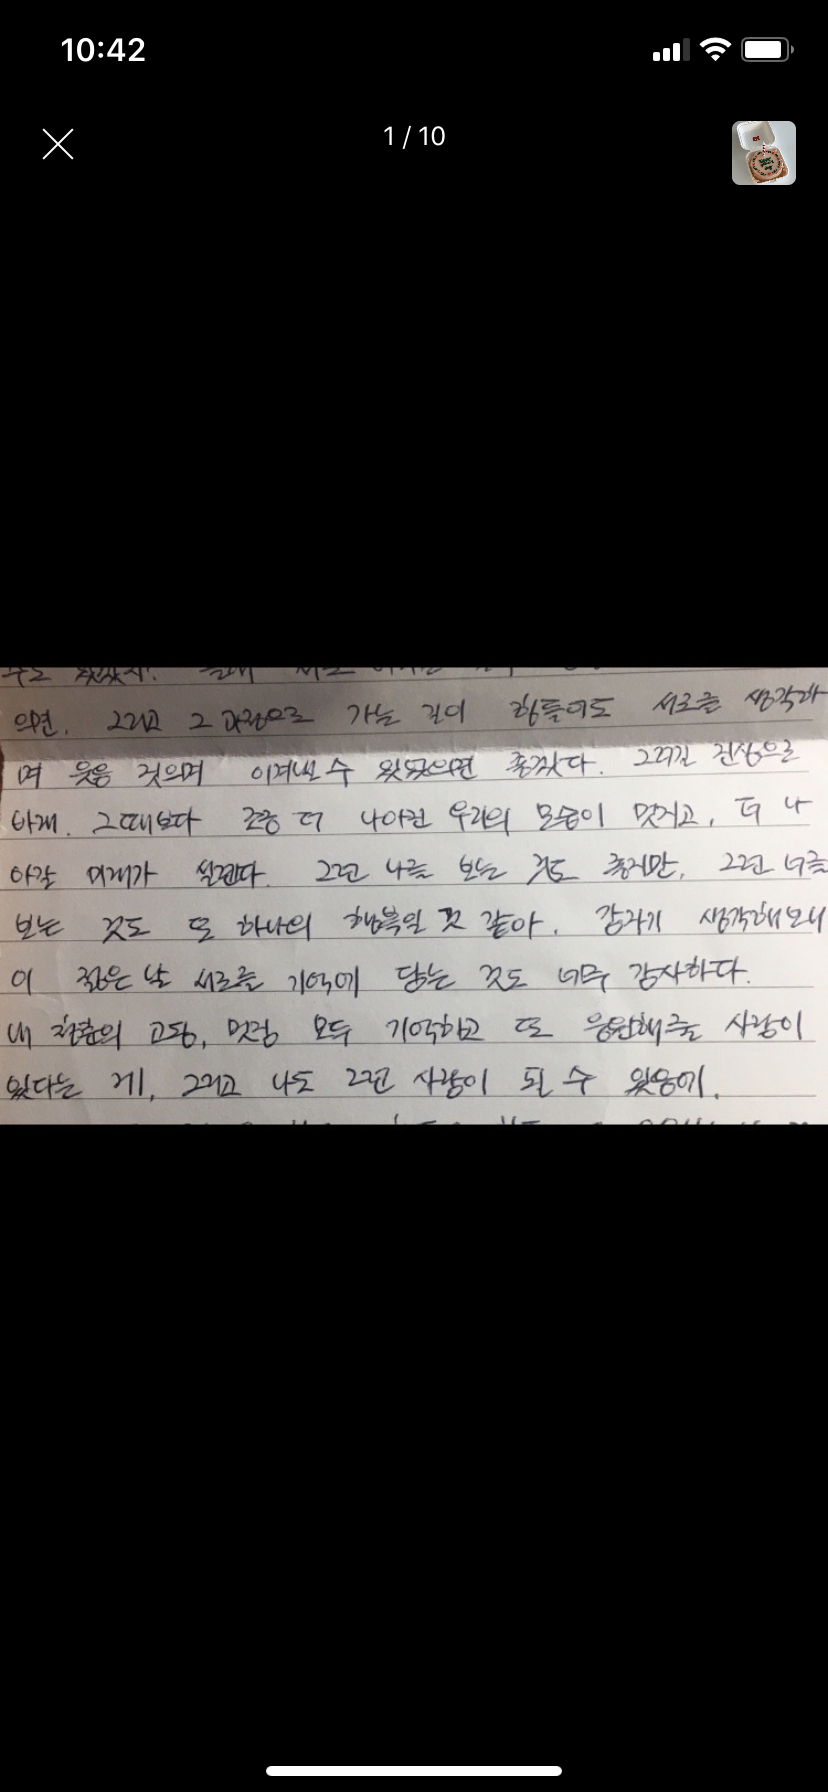 10:42
1 / 10
으면. 그리고 그 과정으로 가는 길이 힘들어도 서로를 생각하
며 웃음 지으며 이겨낼 수 있었으면 좋겠다. 그러길 진심으로
바래. 그때보다 조금 더 나아진 우리의 모습이 멋지고, 더 나
아갈 미래가 설렌다. 그런 나를 보는 것도 좋지만, 그런 너를
보는 것도 또 하나의 행복일 것 같아. 갑자기 생각해보니
이 젊은 날 서로를 기억에 담는 것도 너무 감사하다.
내 청춘의 고뇌, 멋짐 모두 기억하고 또 응원해줄 사람이
있다는 게, 그리고 나도 그런 사람이 될 수 있음에.